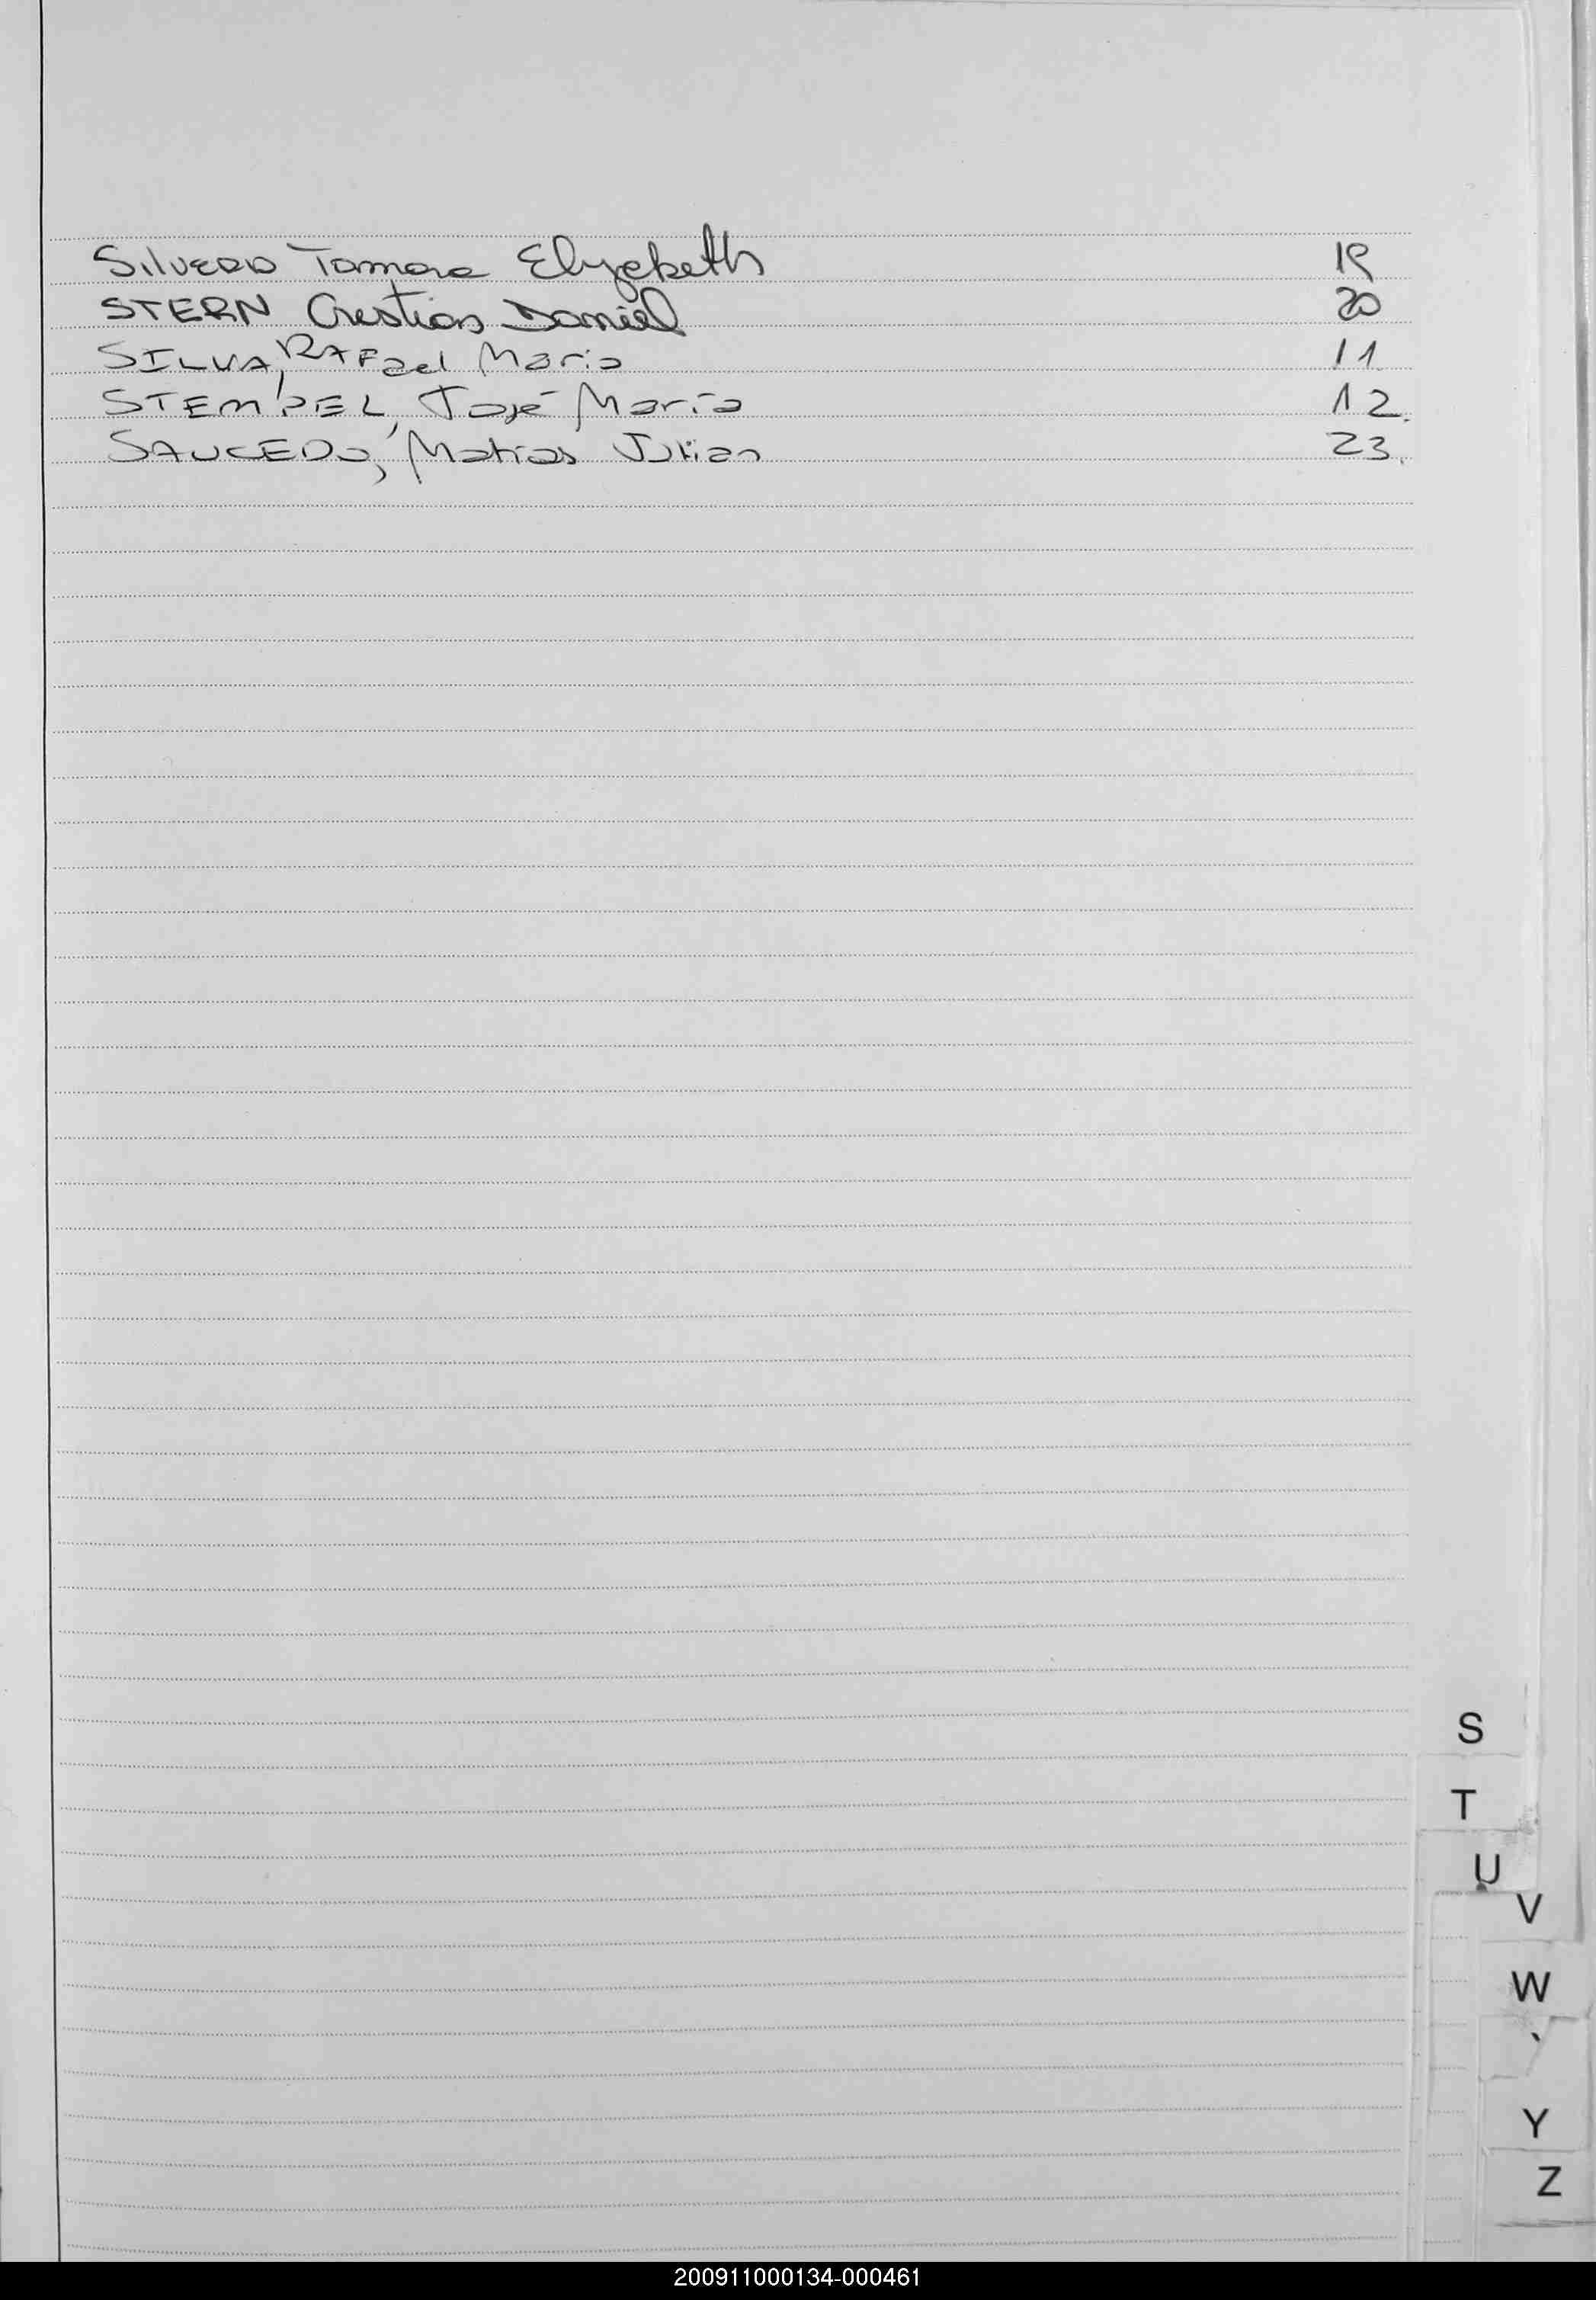 Silvero Tamara Elizabeth 19
STERN Cristian Daniel 20
SILVA, RAFael Maria 11
STEMPEL, José María 12.
SAUCEDO, Matias Julian 23.
S
T
U
V
W
Y
Z
200911000134-000461